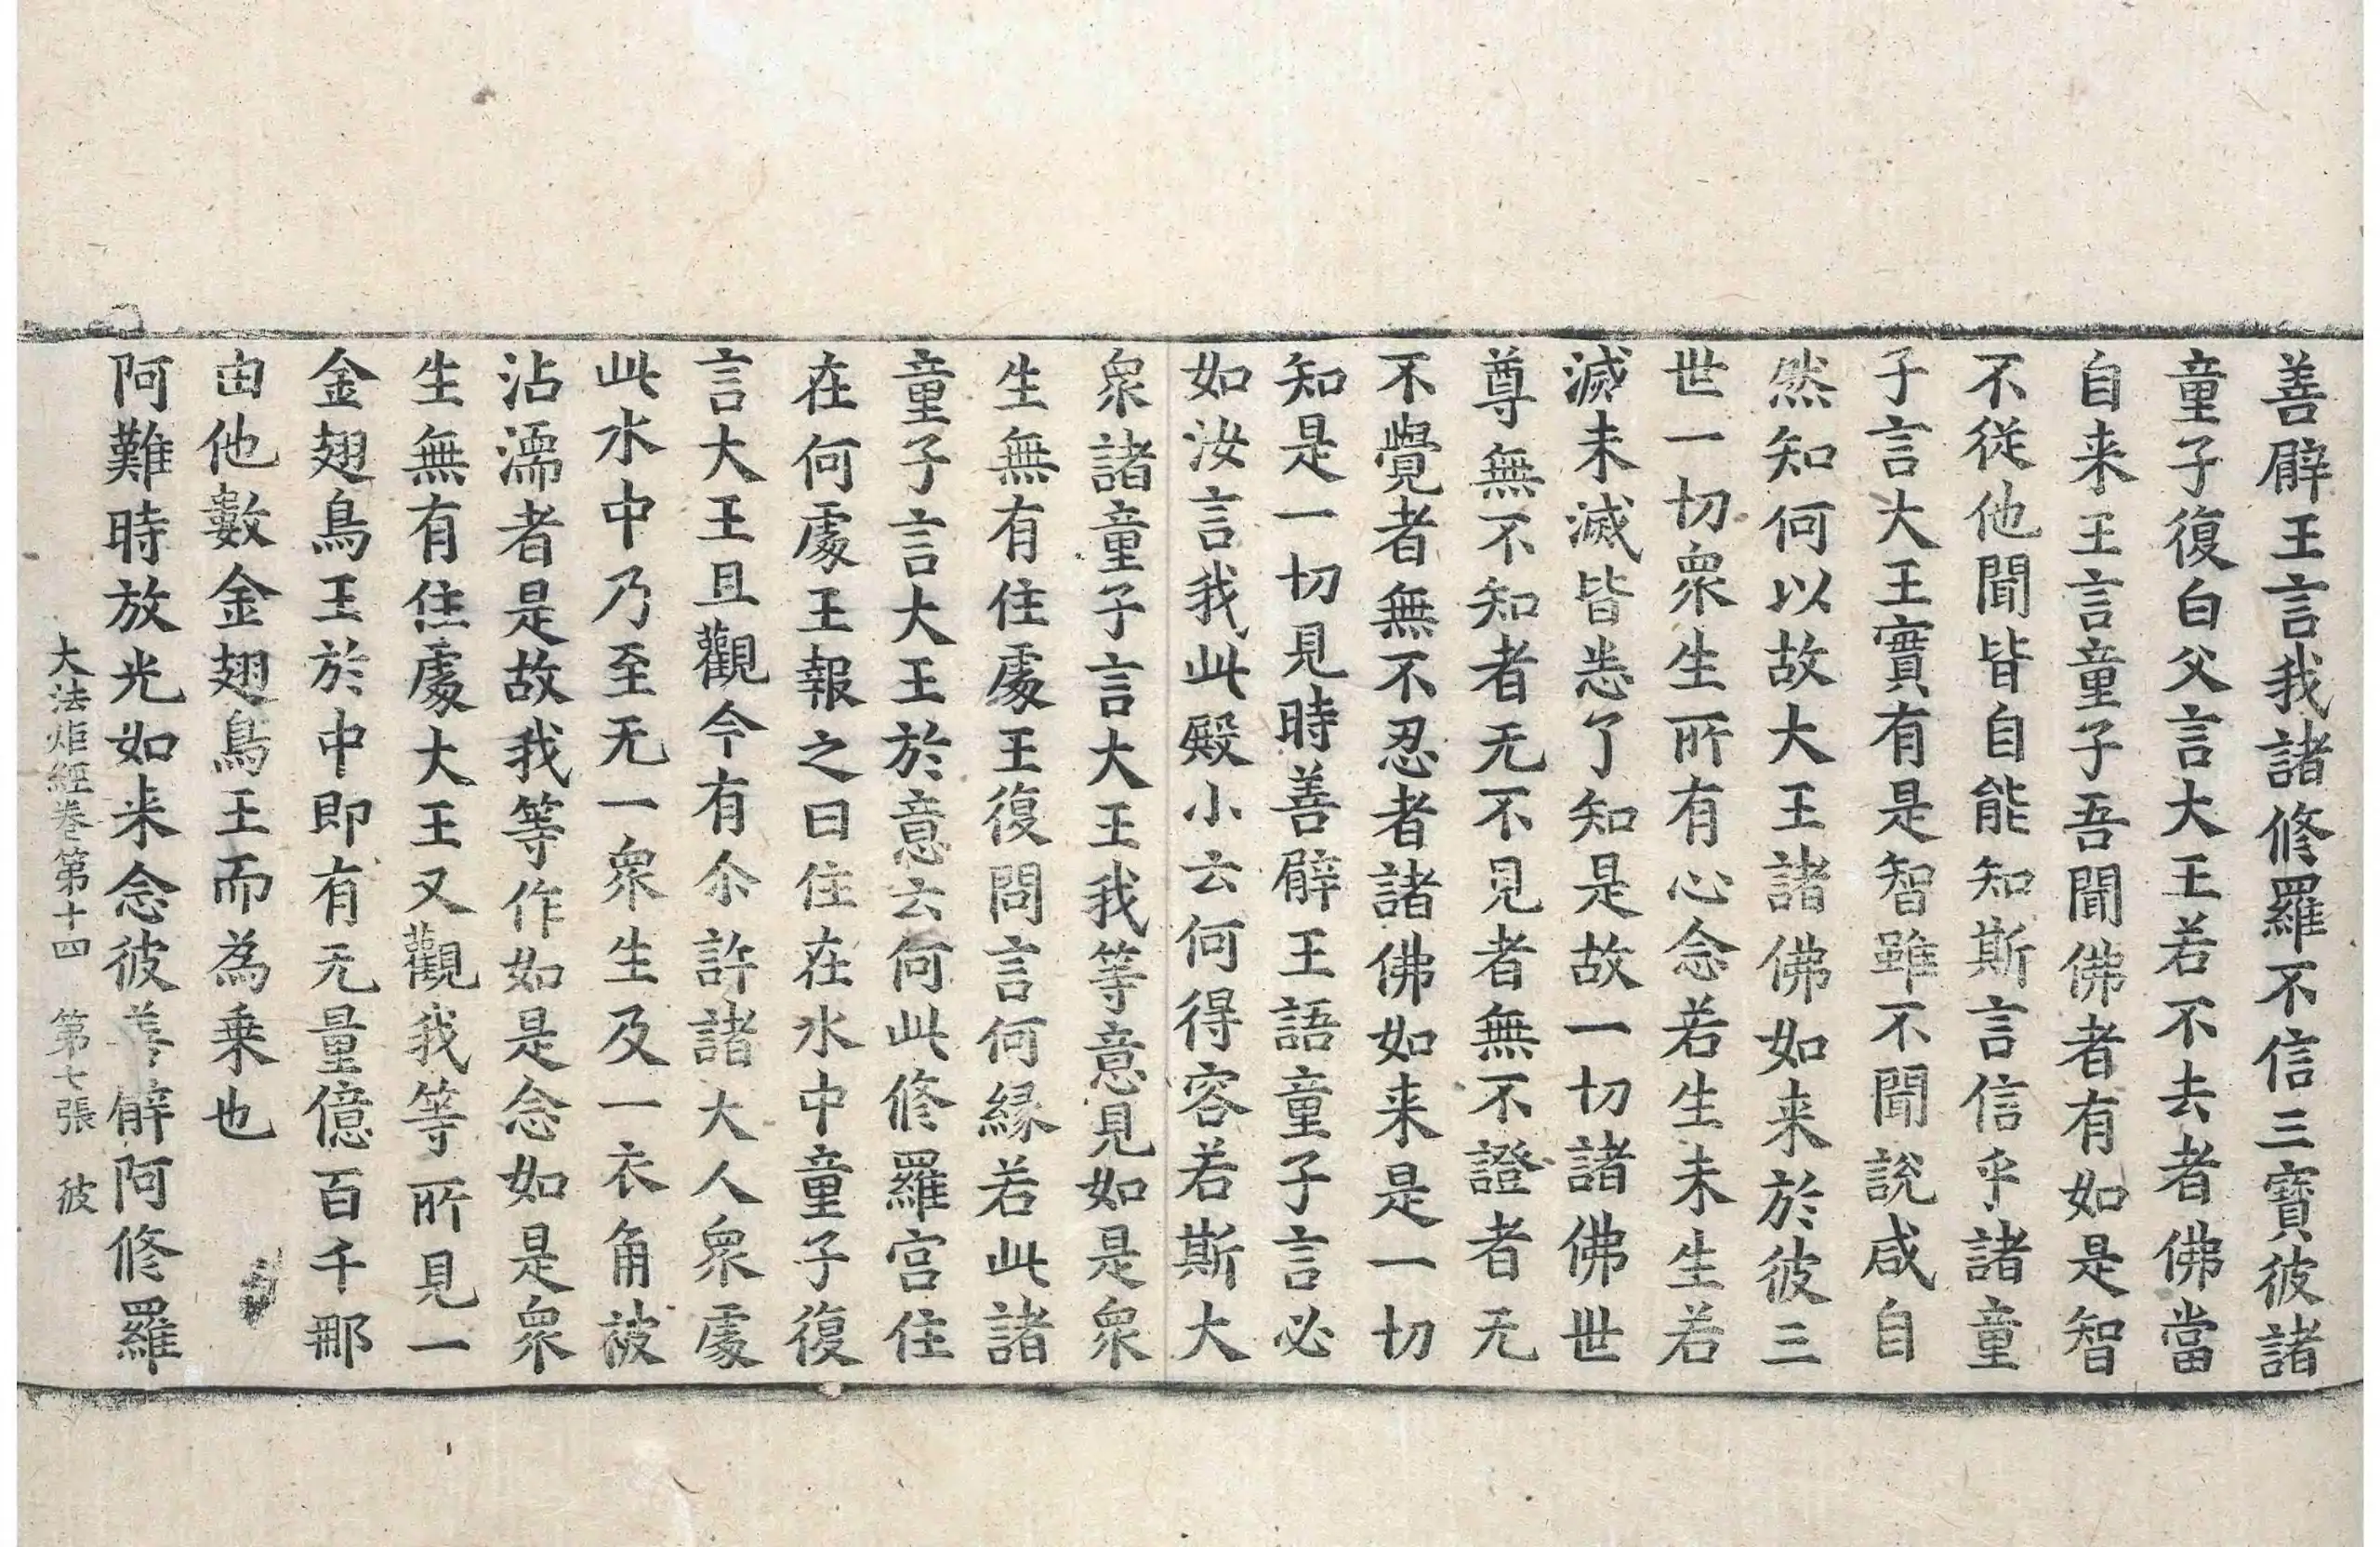 善臂王言我諸修羅不信三寶彼諸
童子復白父言大王若不去者佛當
自来王言童子吾聞佛者有如是智
不從他聞皆自能知斯言信乎諸童
子言大王實有是智雖不聞說咸自
然知何以故大王諸佛如来於彼三
世一切衆生所有心念若生未生若
滅未滅皆悉了知是故一切諸佛世
尊無不知者无不見者無不證者无
不覺者無不忍者諸佛如来是一切
知是一切見時善臂王語童子言必
如汝言我此殿小云何得容若斯大
衆諸童子言大王我等意見如是衆
生無有住處王復問言何緣若此諸
童子言大王於意云何此修羅宮住
在何處王報之曰住在水中童子復
言大王且觀今有尒許諸大人衆處
此水中乃至无一衆生及一衣角被
沾濡者是故我等作如是念如是衆
生無有住處大王又觀我等所見一
金翅鳥王於中即有无量億百千那
由他數金翅鳥王而為乗也
阿難時放光如来念彼善臂阿修羅
大法炬經卷第十四 第七張 彼